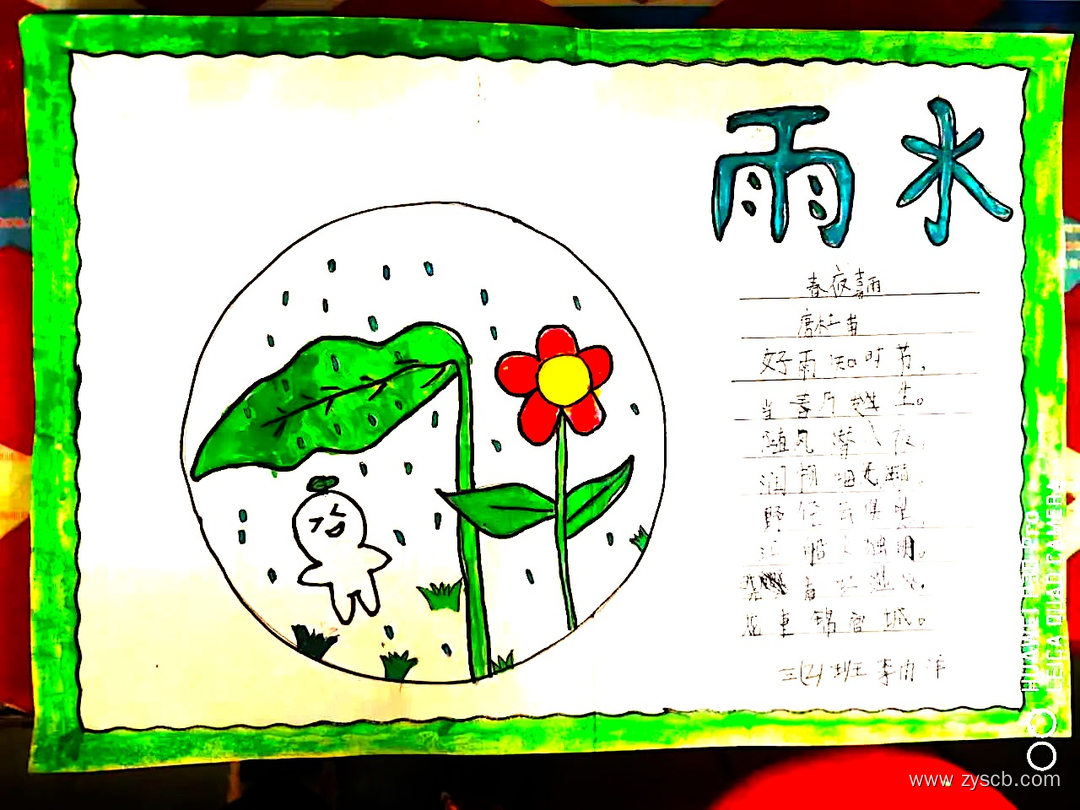 雨水
春夜喜雨
唐杜甫
好雨知时节，
当春乃发生。
随风潜入夜，
润物细无声。
野径云俱黑，
江船火独明。
看红湿处，
花重锦官城。
三(2)班李雨
HUAWEI P30 PRO
LEICA QUAD CAMERA
www.zyscb.com